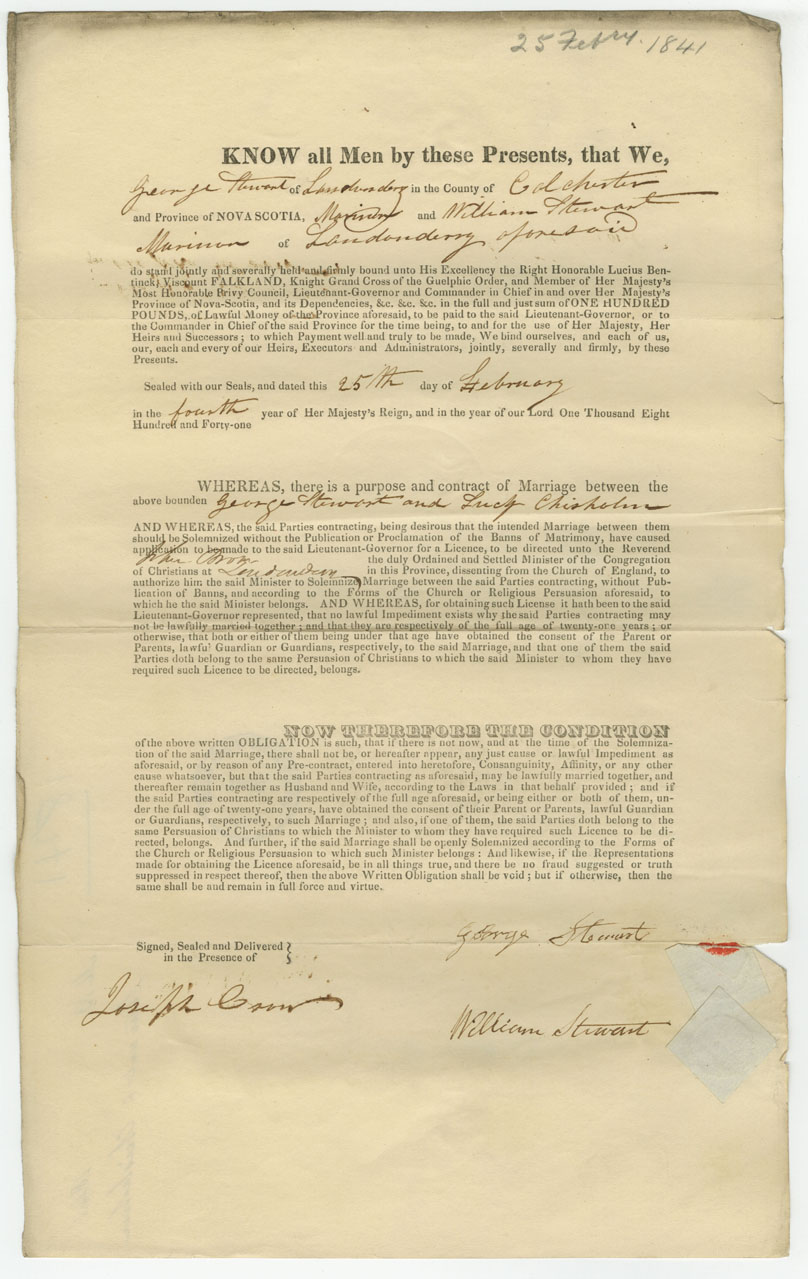 25 Febry. 1841
KNOW all Men by these Presents, that We,
George Stewart of Londonderry in the County of Colchester
and Province of NOVA SCOTIA, Mariner and William Stewart
Marinor of Londonderry aforesaid
do stand jointly and severally held and firmly bound unto His Excellency the Right Honorable Lucius Ben-
tinck, Viscount FALKLAND, Knight Grand Cross of the Guelphic Order, and Member of Her Majesty's
Most Honorable Privy Council, Lieutenant-Governor and Commander in Chief in and over Her Majesty's
Province of Nova-Scotia, and its Dependencies, &c. &c. &c. in the full and just sum of ONE HUNDRED
POUNDS, of Lawful Money of the Province aforesaid, to be paid to the said Lieutenant-Governor, or to
the Commander in Chief of the said Province for the time being, to and for the use of Her Majesty, Her
Heirs and Successors; to which Payment well and truly to be made, We bind ourselves, and each of us,
our, each and every of our Heirs, Executors and Administrators, jointly, severally and firmly, by these
Presents.
Sealed with our Seals, and dated this 25th day of February
in the fourth year of Her Majesty's Reign, and in the year of our Lord One Thousand Eight
Hundred and Forty-one
WHEREAS, there is a purpose and contract of Marriage between the
above bounden George Stewart and Lucy Chisholm
AND WHEREAS, the said Parties contracting, being desirous that the intended Marriage between them
should be Solemnized without the Publication or Proclamation of the Banns of Matrimony, have caused
application to be made to said Lieutenant-Governor for a Licence, to be directed unto the Reverend
John Brown the duly Ordained and Settled Minister of the Congregation
of Christians at Londonderry in this Province, dissenting from the Church of England, to
authorize him the said Minister to Solemnize Marriage between the said Parties contracting, without Pub-
lication of Banns, and according to the Forms of the Church or Religious Persuasion aforesaid, to
which he the said Minister belongs. AND WHEREAS, for obtaining such License it hath been to the said
Lieutenant-Governor represented, that no lawful Impediment exists why the said Parties contracting may
not be lawfully married together; and that they are respectively of the full age of twenty-one years; or
otherwise, that both or either of them being under that age have obtained the consent of the Parent or
Parents, lawful Guardian or Guardians, respectively, to the said Marriage, and that one of them the said
Parties doth belong to the same Persuasion of Christians to which the said Minister to whom they have
required such Licence to be directed, belongs.
NOW THEREFORE THE CONDITION
of the above written OBLIGATION is such, that if there is not now, and at the time of the Solemniza-
tion of the said Marriage, there shall not be, or hereafter appear, any just cause or lawful Impediment as
aforesaid, or by reason of any Pre-contract, entered into heretofore, Consanguinity, Affinity, or any other
cause whatsoever, but that the said Parties contracting as aforesaid, may be lawfully married together, and
thereafter remain together as Husband and Wife, according to the Laws in that behalf provided; and if
the said Parties contracting are respectively of the full age aforesaid, or being either or both of them, un-
der the full age of twenty-one years, have obtained the consent of their Parent or Parents, lawful Guardian
or Guardians, respectively, to such Marriage; and also, if one of them, the said Parties doth belong to the
same Persuasion of Christians to which the Minister to whom they have required such Licence to be di-
rected, belongs. And further, if the said Marriage shall be openly Solemnized according to the Forms of
the Church or Religious Persuasion to which such Minister belongs: And likewise, if the Representations
made for obtaining the Licence aforesaid, be in all things true, and there be no fraud suggested or truth
suppressed in respect thereof, then the above Written Obligation shall be void; but if otherwise, then the
same shall be and remain in full force and virtue.
Signed, Sealed and Delivered
in the Presence of
George Stewart
Joseph Crow
William Stewart